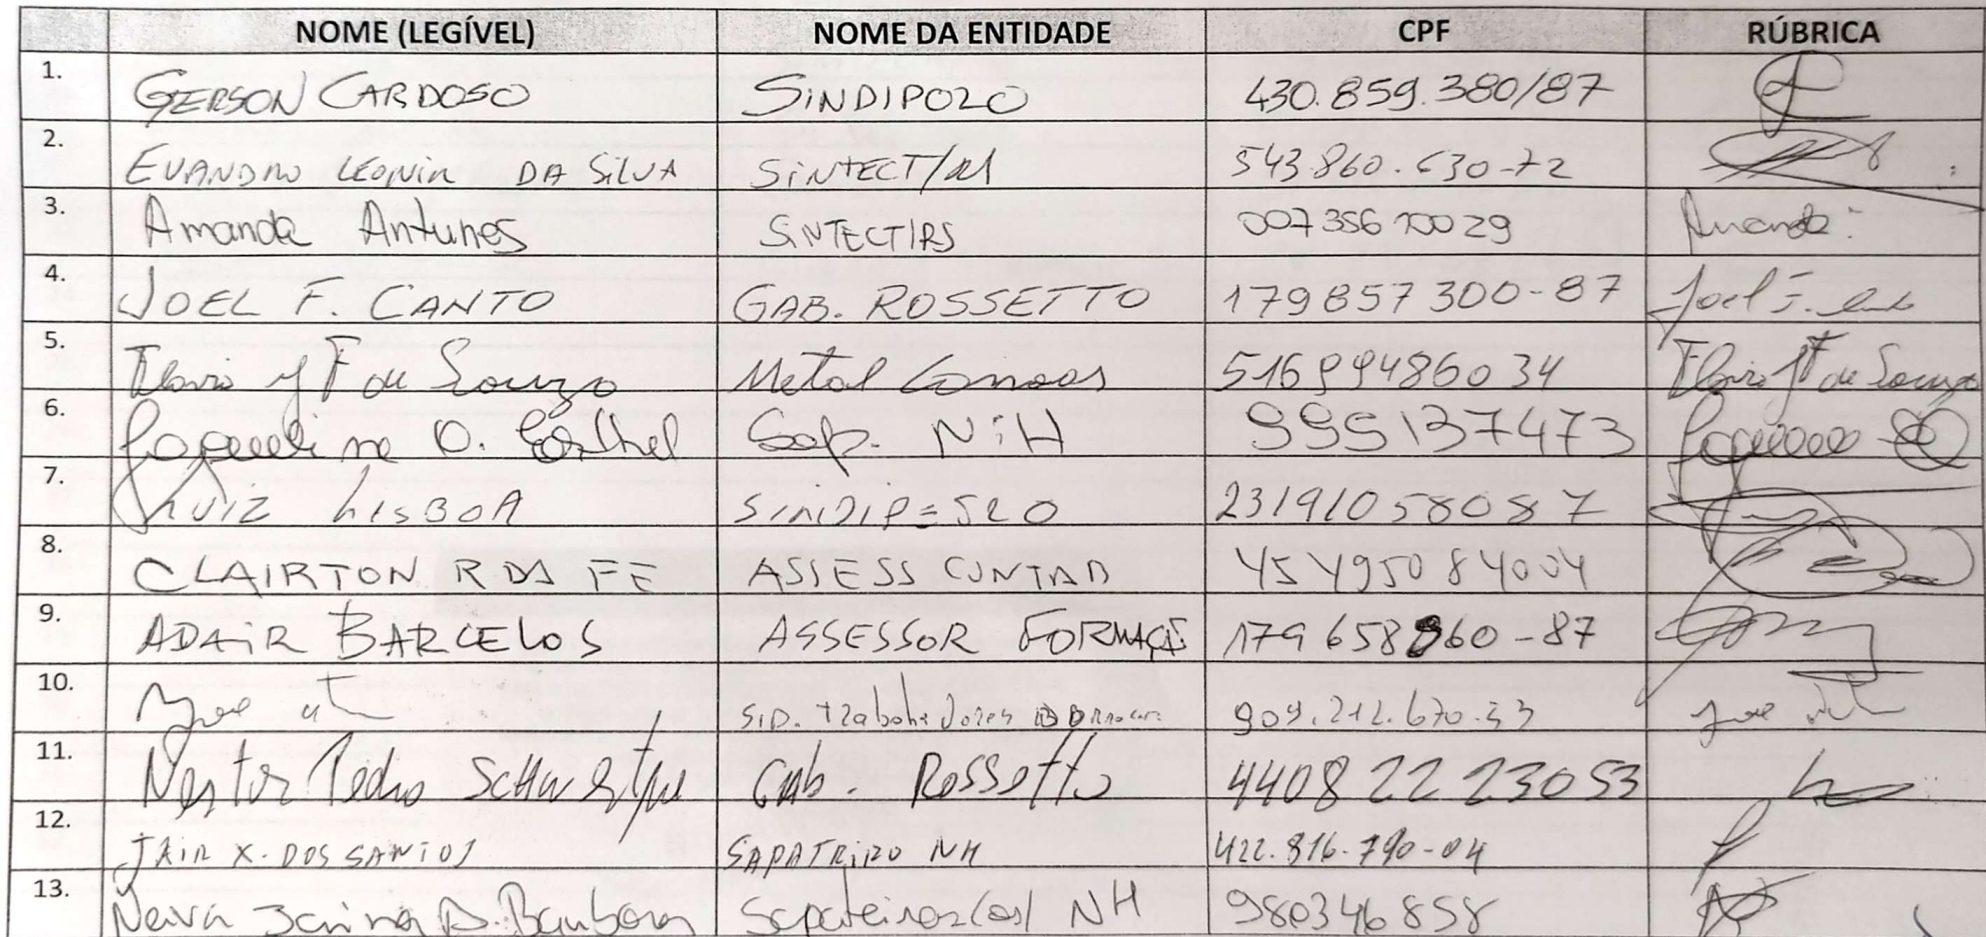 NOME (LEGÍVEL) NOME DA ENTIDADE CPF RÚBRICA
1. GERSON CARDOSO SINDIPOLO 430.859.380/87
2. EVANDRO LEONIR DA SILVA SINTECT/RS 543.860.630-72
3. Amanda Antunes SINTECT/RS 007356 100 29 Amanda
4. JOEL F. CANTO GAB. ROSSETTO 179857300-87 Joel F.
5. Flavio F de Souza Metal Canoas 51699486034 Flavio de Souza
6. Jaqueline O. Sap. NH 995137473
7. LUIZ LISBOA 23191058087
8. CLAIRTON R DA FE ASSESS CONTAB 45495084004
9. ADAIR BARCELOS ASSESSOR FORMAÇÃO 179658960-87
10. Jose 909.212.670.53 Jose
11. Nestor Pedro Gab. Rossetto 4408222 3053
12. JAIR X. DOS SANTOS SAPATEIRO NH 422.816.790-04
13. Neiva D. Barbosa Sapateiros(as) NH 980346858